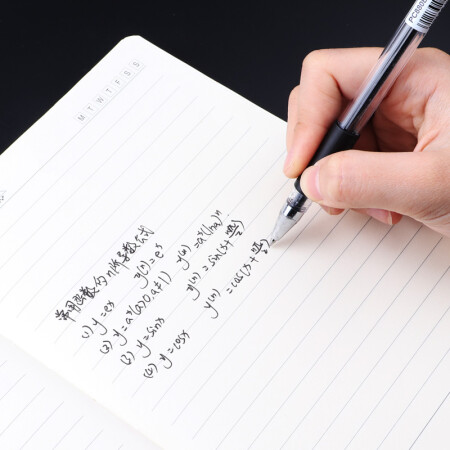 M T W T F S S
常用函数的n阶导数公式
(1) y=e^x y^(n)=e^x
(2) y=a^x(a>0.a≠1) y^(n)=a^x(lna)^n
(3) y=sinx y^(n)=sin(x+nπ/2)
(4) y=cosx y^(n)=cos(x+nπ/2)